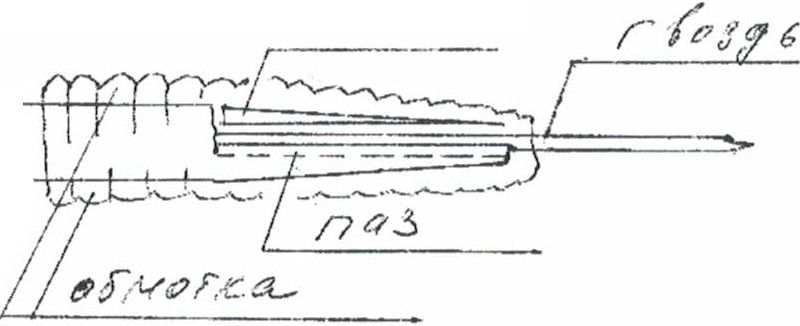 гвоздь
паз
обмотка